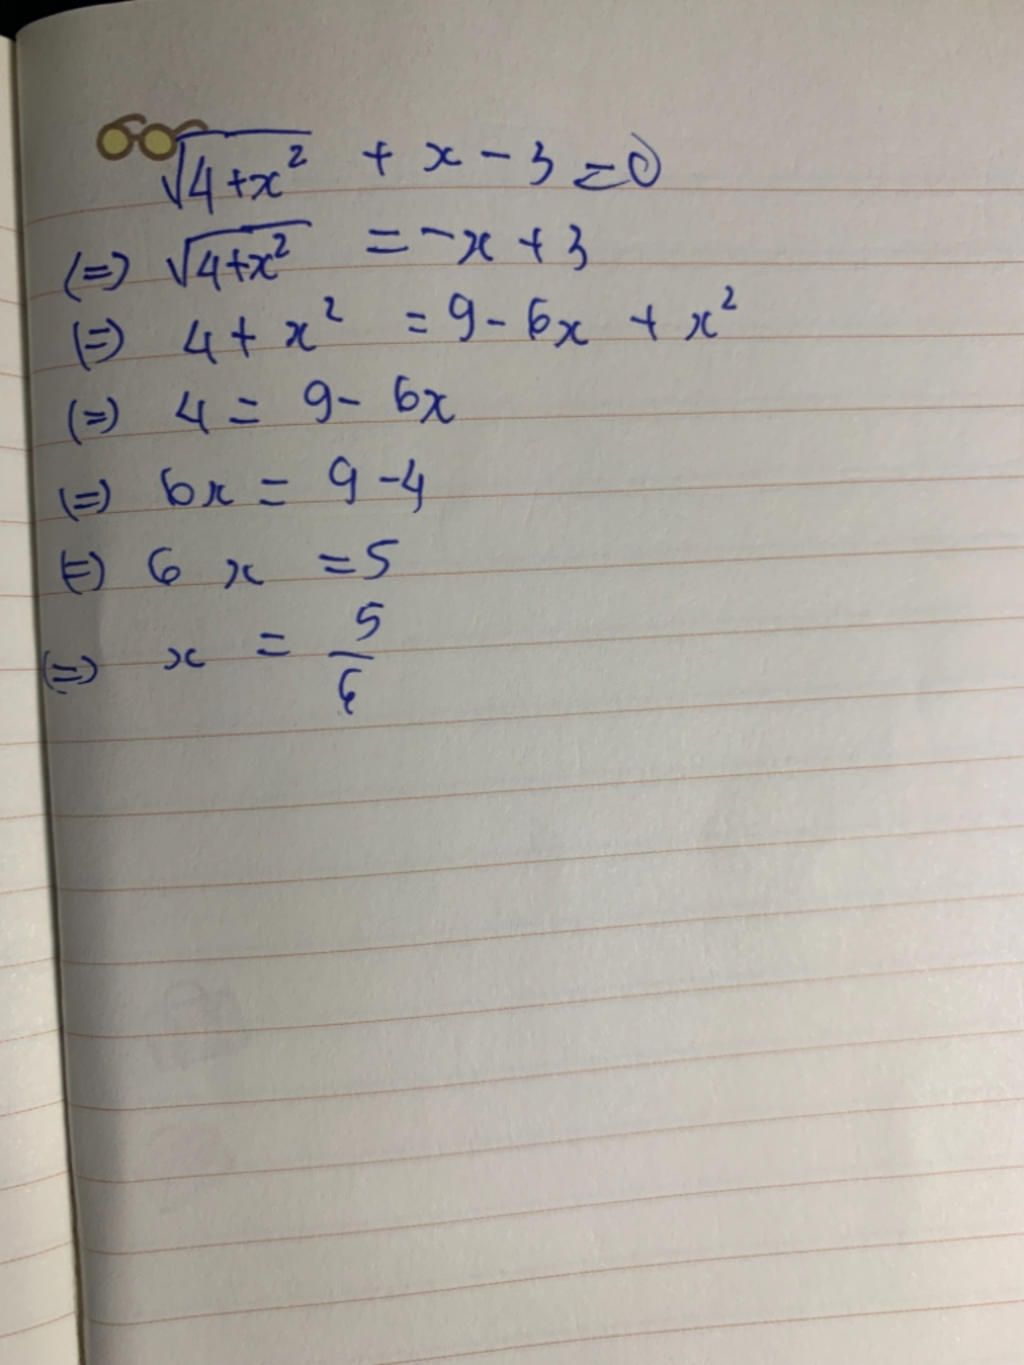 √(4+x²) + x - 3 = 0
(=) √(4+x²) = -x + 3
(=) 4 + x² = 9 - 6x + x²
(=) 4 = 9 - 6x
(=) 6x = 9 - 4
(=) 6x = 5
(=) x = 5/6